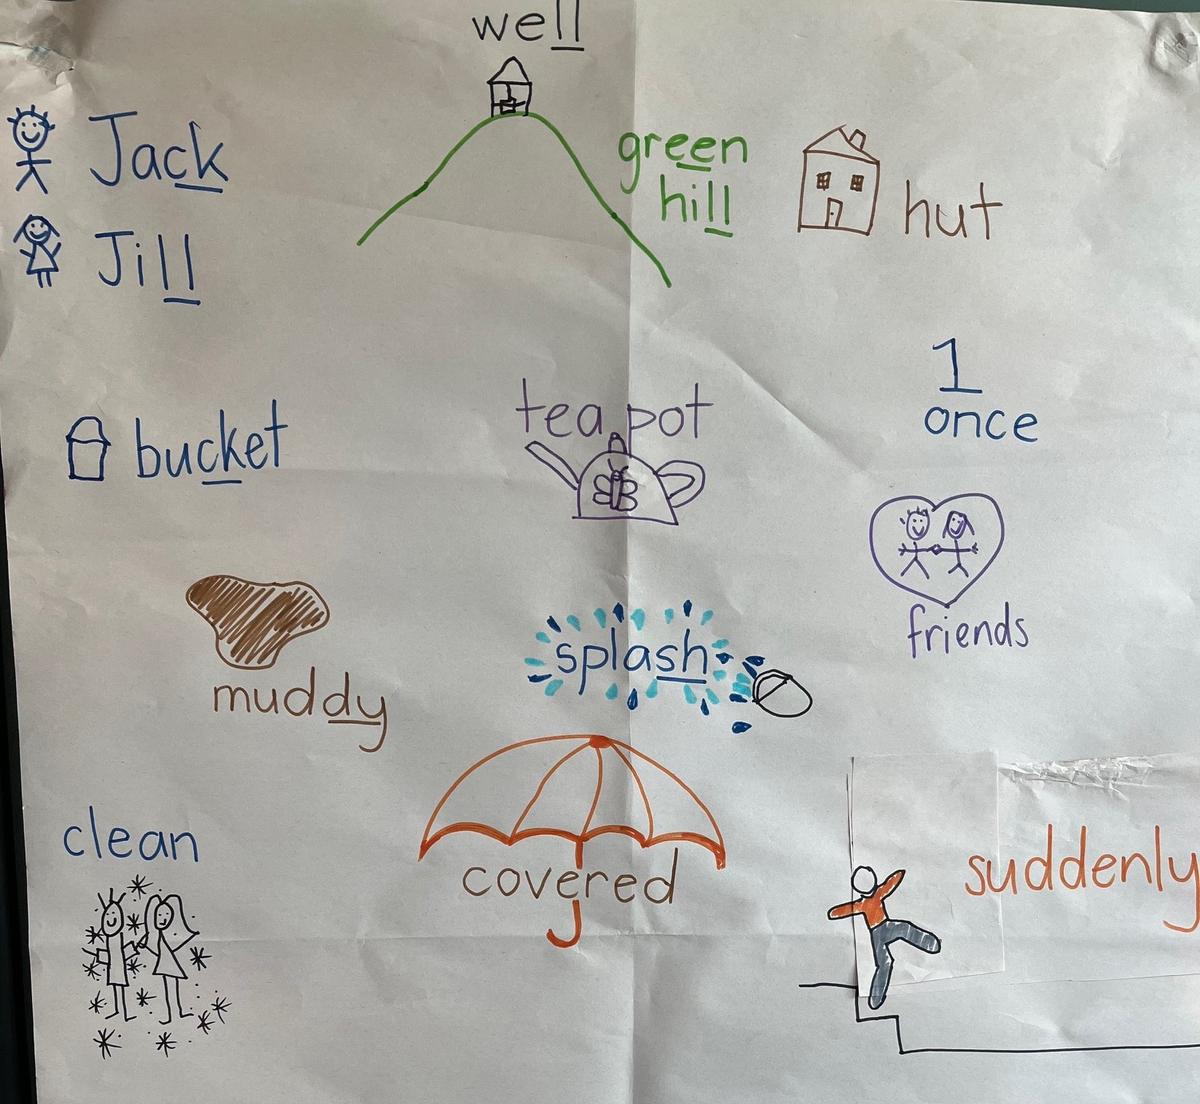 well
Jack
green
hill
hut
Jill
1
once
bucket
teapot
friends
splash
muddy
clean
covered
suddenly